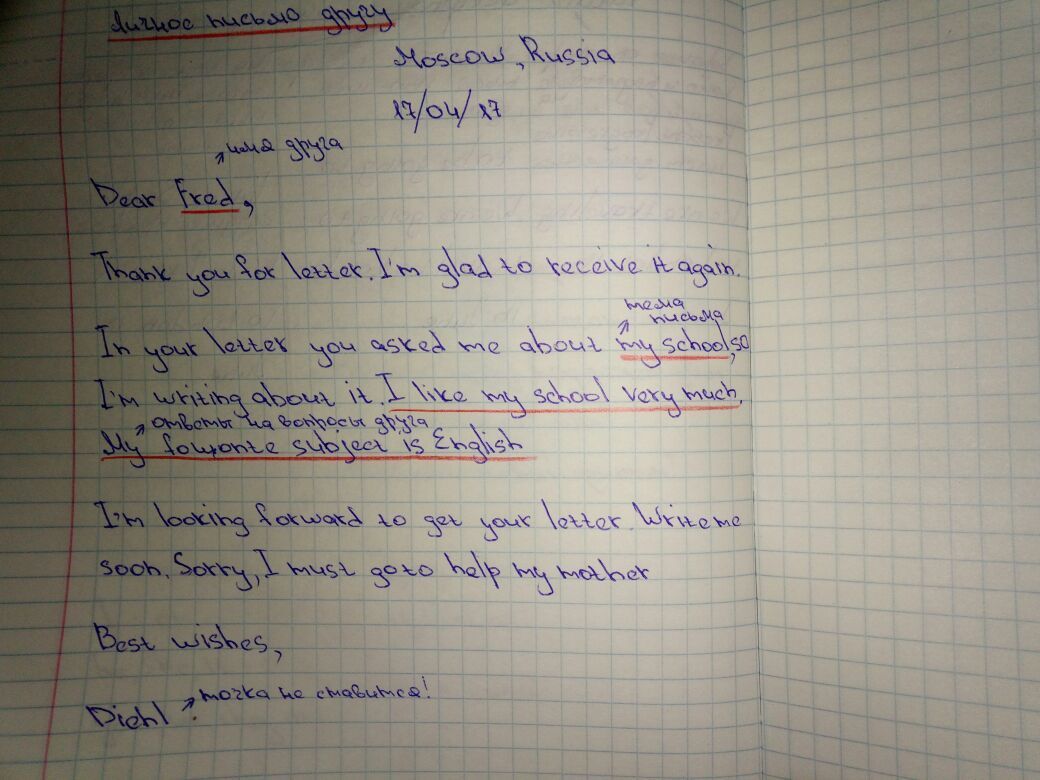 Личное письмо другу
Moscow, Russia
17/04/17
имя друга
Dear Fred,
Thank you for letter. I'm glad to receive it again.
тема
письма
In your letter you asked me about my school, so
I'm writing about it. I like my school very much.
ответы на вопросы друга
My favorite subject is English
I'm looking forward to get your letter. Write me
soon. Sorry, I must go to help my mother
Best wishes,
точка не ставится!
Diehl